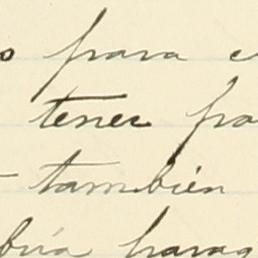 o para e
tener pa
también
bía parag